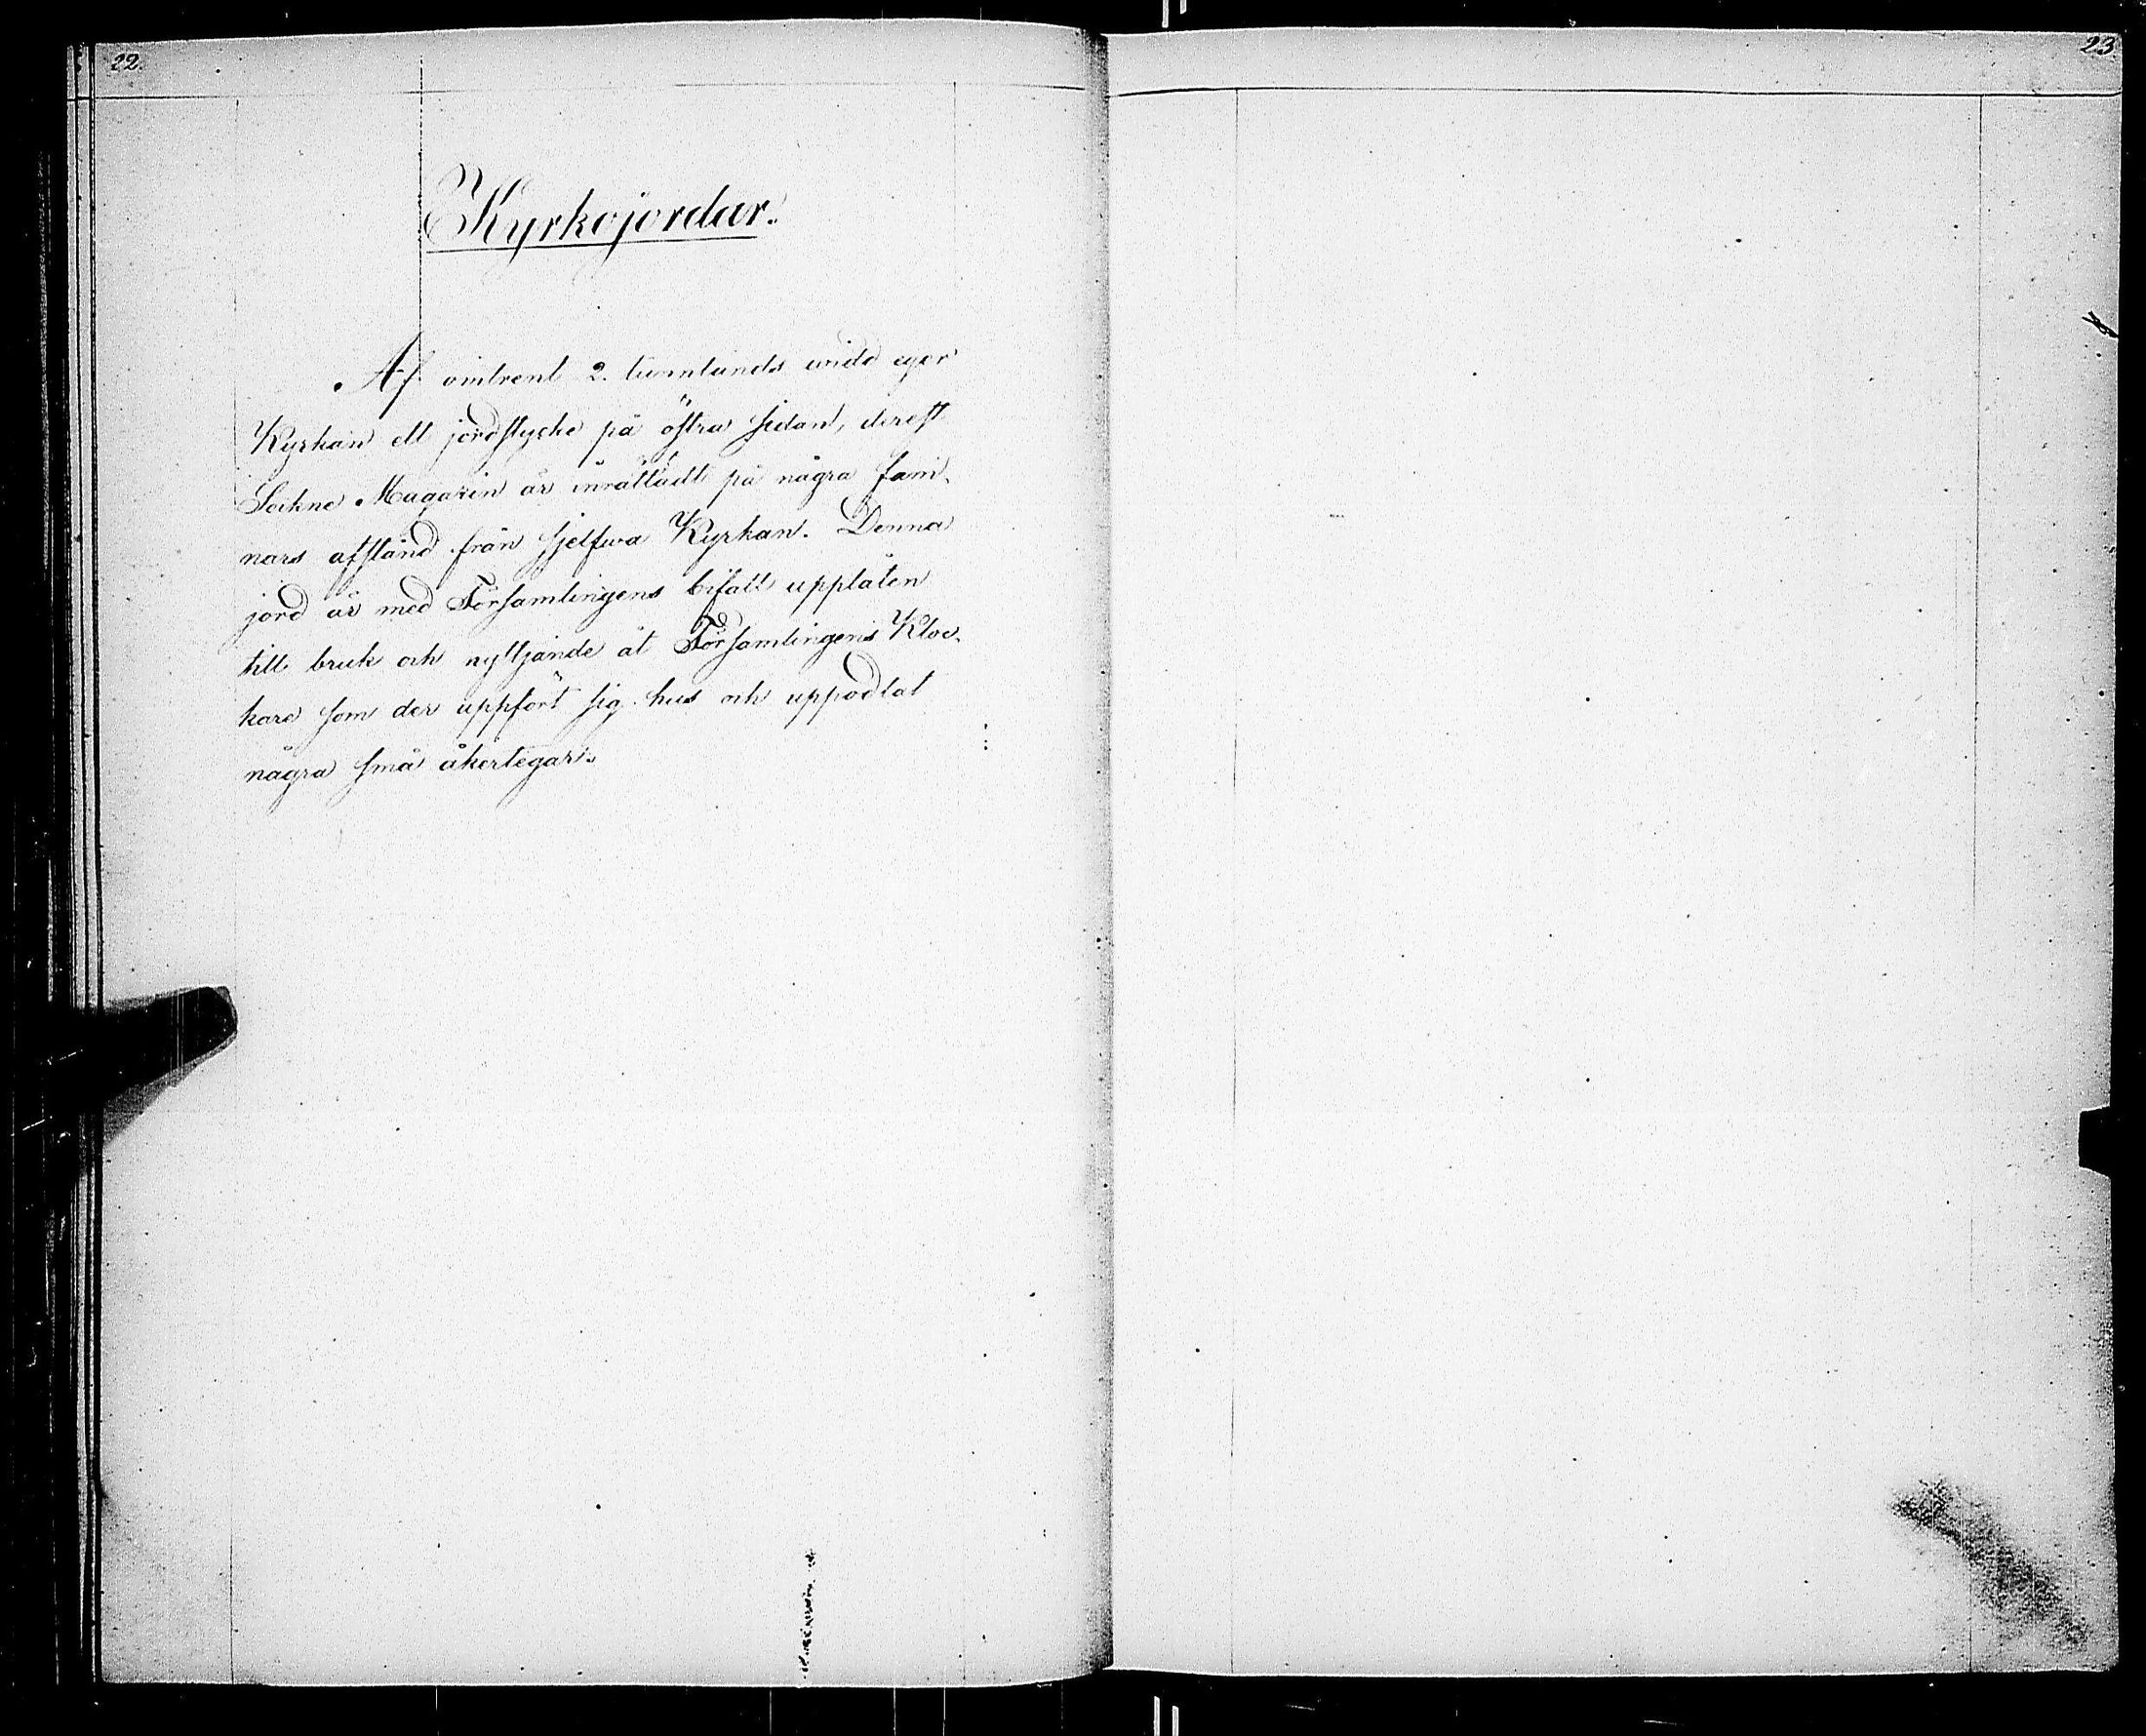 22.
23.
Kyrkojordar.
Af omtrent 2. tunnlands vidd eger
Kyrkan ett jordstycke på östra sidan, derest
Sockne Magazin är inrättadt på några fam-
nars afstånd från sjelfwa Kyrkan. Denna
jord är med Församlingens bifall upplåten
till bruk och nyttjande åt Församlingens Kloc-
kare som der uppfört sig hus och uppodlat
några små åkertegar.